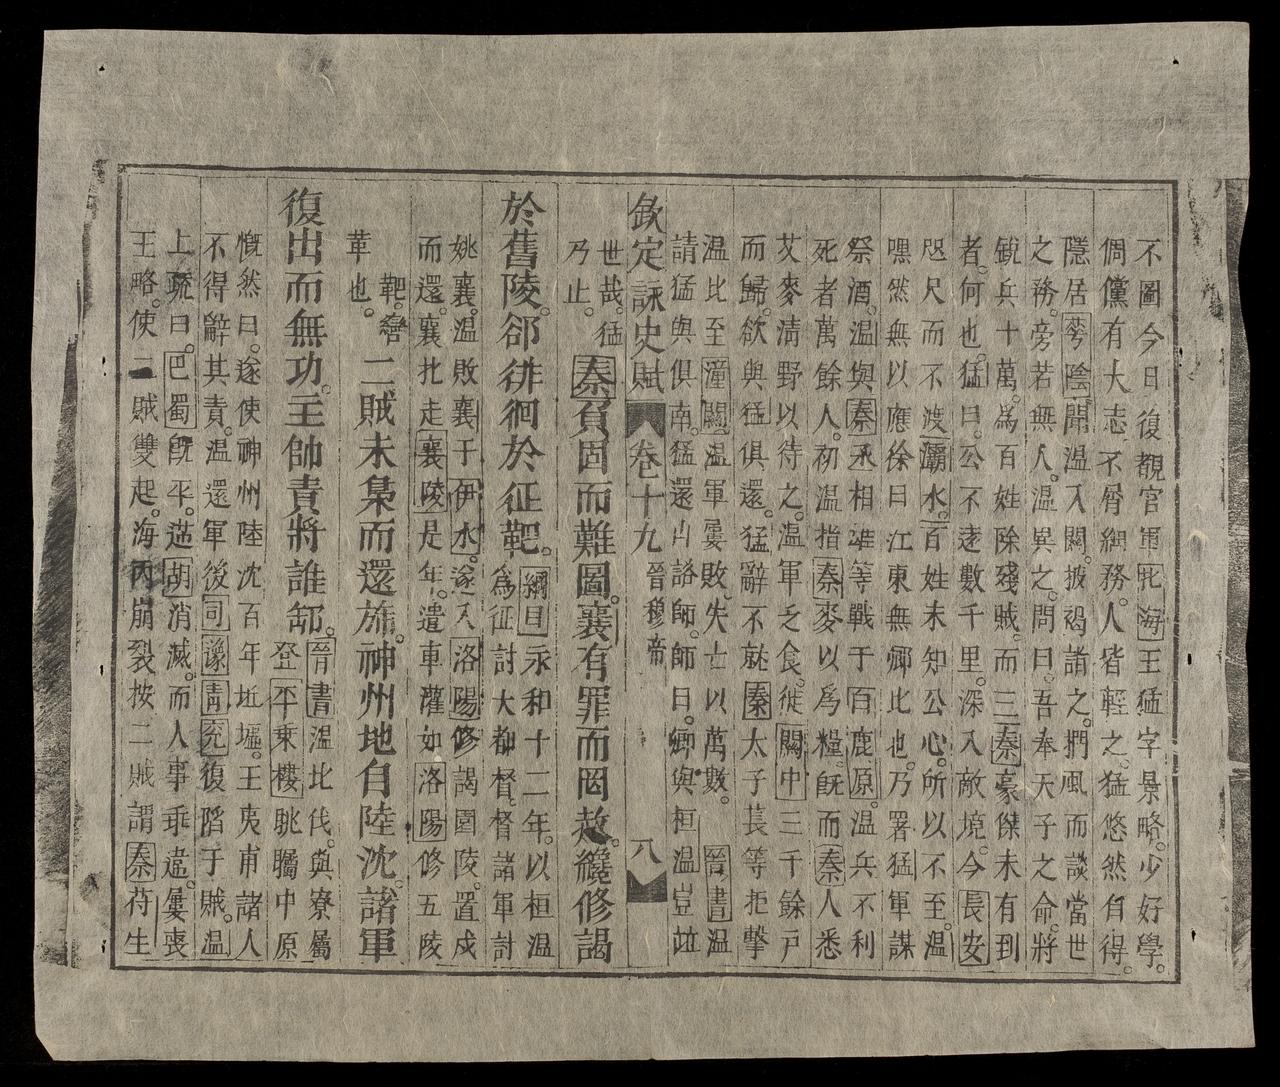 不圖今日復覩官軍北海王猛字景略。少好學。
倜儻有大志不屑細務。人皆輕之。猛悠然自得。
隱居華陰聞溫入關。披褐詣之。捫風而談當世
之務。旁若無人。溫異之。問曰。吾奉天子之命。將
銳兵十萬。爲百姓除殘賊。而三秦豪傑未有到
者。何也。猛曰。公不遠數千里。深入敵境。今長安
咫尺而不渡灞水。百姓未知公心。所以不至。溫
嘿然無以應徐曰江東無卿比也。乃署猛軍謀
祭酒。溫與秦丞相雄等戰于百鹿原。溫兵不利
死者萬餘人。初溫指秦麥以爲糧。旣而秦人悉
艾麥淸野以待之。溫軍乏食。徙關中三千餘戶
而歸。欲與猛俱還。猛辭不就秦太子萇等拒擊
溫比至潼關。溫軍屢敗。失士以萬數。 晉書溫
請猛與俱南。猛還山諮師。師曰。卿與桓溫豈竝
欽定詠史賦 卷十九 晉穆帝 八
世哉。猛
乃止。
秦負固而難圖。襄有罪而罔赦。纔修謁
於舊陵。郤徘徊於征靶。
綱目永和十二年。以桓溫
爲征討大都督。督諸軍討
姚襄。溫敗襄于伊水。遂入洛陽修謁園陵。置戍
而還。襄北走襄陵是年。遣車灌如洛陽修五陵
靶。轡
革也。
二賊未梟而還旆。神州地自陸沈。諸軍
復出而無功。主帥責將誰郤。
晉書溫北伐。與寮屬
登平乗樓眺矚中原
慨然曰。遂使神州陸沈百年坵墟。王夷甫諸人
不得辭其責。溫還軍後司豫青兗復陷于賊。溫
上疏曰。巴蜀旣平。逆胡消滅。而人事乖違。屢喪
王略。使二賊雙起。海內崩裂按二賊謂秦苻生